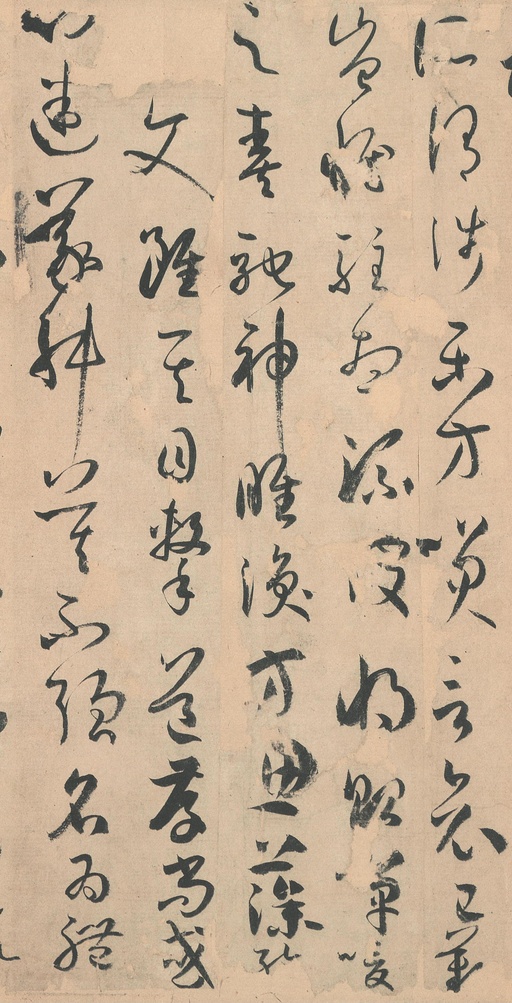 所謂涉樂方笑言哀已歎
豈惟駐想流波將貽嘽喛
之奏馳神睢渙方思藻
文雖其目擊道存尚或
心迷議舛莫不強名為體